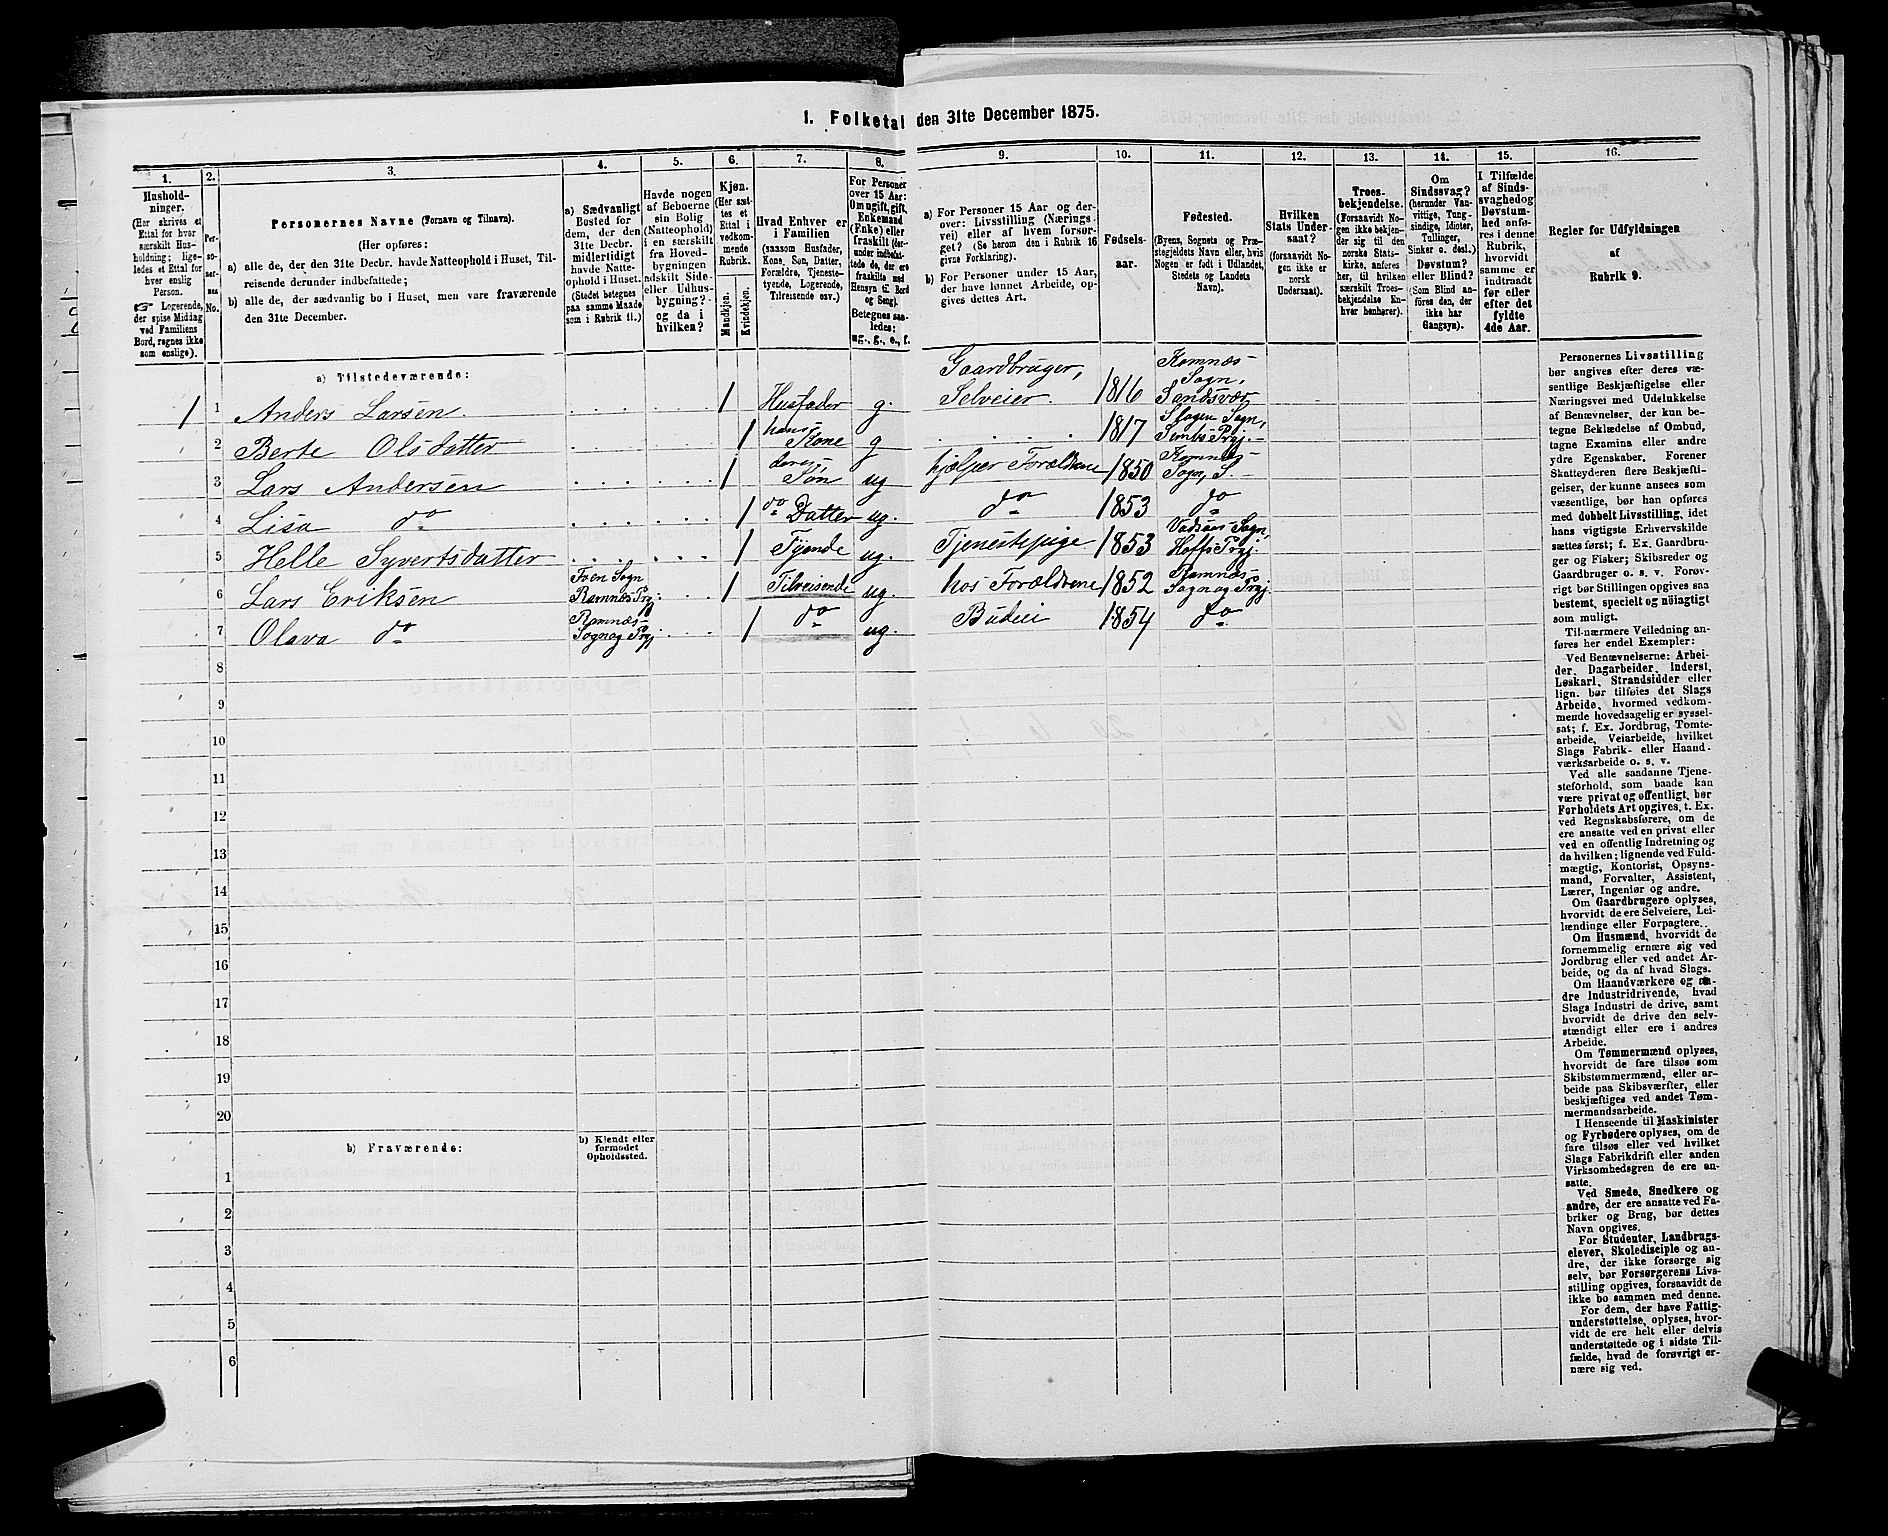 1. Folketal den 31te December 1875.
1. 2. 3. 4. 5. 6. 7. 8. 9. 10. 11. 12. 13. 14. 15. 16.
Husholdninger.
(Her skrives et
Ettal for hver
særskilt Husholdning;
ligeledes et Ettal for
hver enslig
Person.
☞ Logerende,
der spise Middag
ved Familiens
Bord, regnes ikke
som enslige).
Personernes No.
Personernes Navne (Fornavn og Tilnavn).
(Her opføres:
a) alle de, der den 31te Decbr. havde Natteophold i Huset, Tilreisende derunder indbefattede;
b) alle de, der sædvanlig bo i Huset, men vare fraværende
den 31te December.
a) Sædvanligt
Bosted for
dem, der den
31te Decbr.
midlertidigt
havde Natteophold i Huset.
(Stedet betegnes
paa samme Maade
som i Rubrik 11.)
Havde nogen
af Beboerne
sin Bolig
(Natteophold)
i en særskilt
fra Hovedbygningen
adskilt Side-
eller Udhusbygning?
og da i
hvilken?
Kjøn.
(Her sættes et
Ettal i
vedkommende
Rubrik.
Mandkjøn.
Kvindekjøn.
Hvad Enhver er
i Familien
(saasom Husfader,
Kone, Søn, Datter,
Forældre, Tjenestetyende, Logerende,
Tilreisende osv.)
For Personer
over 15 Aar:
Om ugift, gift,
Enkemand
(Enke) eller
fraskilt (derunder indbefattede de, der ere
fraskilte med
Hensyn til Bord
og Seng).
Betegnes saaledes:
ug., g., e., f.
a) For Personer 15 Aar og derover: Livsstilling (Næringsvei) eller af hvem forsørget? (Se herom den i Rubrik 16
givne Forklaring).
b) For Personer under 15 Aar,
der have lønnet Arbeide, opgives dettes Art.
Fødselsaar.
Fødested.
(Byens, Sognets og Præstegjeldets Navn eller, hvis
Nogen er født i Udlandet,
Stedets og Landets
Navn).
Hvilken
Stats Undersaat?
(forsaavidt Nogen ikke er
norsk
Undersaat).
Troesbekjendelse.
(Forsaavidt Nogen ikke bekjender sig til den
norske Statskirke, anføres
her, til hvilken
særskilt Troesbekjendelse Enhver henhører).
Om
Sindssvag?
(herunder Vanvittige, Tungsindige, Idioter,
Tullinger,
Sinker o. desl.)
Døvstum?
eller Blind?
(Som Blind anføres den, der
ikke har
Gangsyn).
I Tilfælde
af Sindssvaghed og
Døvstumhed anføres i denne
Rubrik,
hvorvidt
samme er
indtraadt
før eller
efter det
fyldte
4de Aar.
Regler for Udfyldningen
af
Rubrik 9.
a) Tilstedeværende:
1 1 Anders Larsen 1 Husfader g. Gaardbruger, Selveier. 1816 Komnæs Sogn, Sandsvær
2 Berte Olsdatter 1 hans Kone g 1817 Slagen Sogn, Sembs Prgj.
3 Lars Andersen 1 deres Søn ug hjælper Forældrene 1850 Komnæs Sogn, S.
4 Lisa do 1 do Datter ug. do 1853 do
5 Helle Syvertsdatter 1 Tjende ug. Tjenestepige 1853 Sogn, Hoffs Prgj.
6 Lars Eriksen Foen Sogn Ramnæs Prgj. 1 Tilreisende ug. hos Forældrene 1852 Ramnæs Sogn og Prgj.
7 Olava do Ramnæs Sogn og Prgj 1 do ug. Budeie 1854 do.
8
9
10
11
12
13
14
15
16
17
18
19
20
b) Fraværende:
b) Kjendt eller
formodet
Opholdssted.
1
2
3
4
5
6
Personernes Livsstilling
bør angives efter deres væsentlige Beskjæftigelse eller
Næringsvei med Udelukkelse
af Benævnelser, der kun betegne Beklædelse af Ombud,
tagne Examina eller andre
ydre Egenskaber. Forener
Skatteyderen flere Beskjæftigelser, der kunne ansees som
væsentlige, bør han opføres
med dobbelt Livsstilling, idet
hans vigtigste Erhvervskilde
sættes først; f. Ex. Gaardbruger og Fisker; Skibsreder og
Gaardbruger o. s. v. Forøvrigt bør Stillingen opgives saa
bestemt, specielt og nöiagtigt
som muligt.
Til nærmere Veiledning anføres her endel Exempler:
Ved Benævnelserne: Arbeider, Dagarbeider, Inderst,
Løskarl, Strandsidder eller
lign. bør tilføies det Slags
Arbeide, hvormed vedkommende hovedsagelig er sysselsat; f. Ex. Jordbrug, Tomtearbeide, Veiarbeide, hvilket
Slags Fabrik- eller Haandværksarbeide o. s. v.
Ved alle saadanne Tjenesteforhold, som baade kan
være privat og offentligt, bør
Forholdets Art opgives, t. Ex.
ved Regnskabsførere, om de
ere ansatte ved en privat eller
ved en offentlig Indretning og
da hvilken; lignende ved Fuldmægtig, Kontorist, Opsynsmand, Forvalter, Assistent,
Lærer, Ingeniør og andre.
Om Gaardbrugere oplyses,
hvorvidt de ere Selveiere, Leilændinge eller Forpagtere.
Om Husmænd, hvorvidt de
fornemmelig ernære sig ved
Jordbrug eller ved andet Arbeide, og da af hvad Slags.
Om Haandværkere og andre Industridrivende, hvad
Slags Industri de drive, samt
hvorvidt de drive den selvstændigt eller ere i andres
Arbeide.
Om Tømmermænd oplyses,
hvorvidt de fare tilsøs som
Skibstømmermænd, eller arbeide paa Skibsværfter, eller
beskjæftiges ved andet Tømmermandsarbeide.
I Henseende til Maskinister
og Fyrbødere oplyses, om de
fare tilsøs eller ved hvilket
Slags Fabrikdrift eller anden
Virksomhedsgren de ere ansatte.
Ved Smede, Snedkere og
andre, der ere ansatte ved Fabriker og Brug, bør dettes
Navn opgives.
For Studenter, Landbrugselever, Skoledisciple og andre, der ikke forsørge sig
selv, bør Forsørgerens Livsstilling opgives, forsaavidt de
ikke bo sammen med denne.
For dem, der have Fattigunderstøttelse, oplyses, hvorvidt de ere helt eller delvis
understøttede og i sidste Tilfælde, hvad de forøvrigt ernære sig ved.